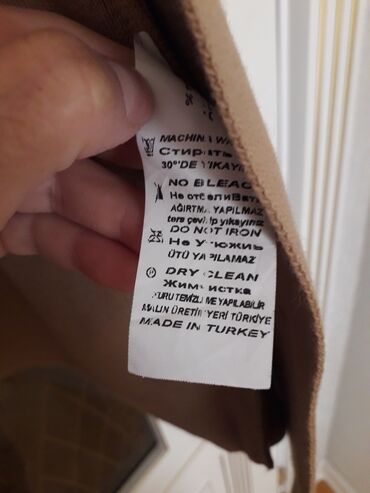 MACHIN WA
Стирать
30°'DE YIKAYI
NO BLEAC
Не отбеливать
AĞIRTMA YAPILMAZ
ters çevirip yıkayınız
DO NOT IRON
Не Утюжить
ÜTÜ YAPILAMAZ
DRY CLEAN
Химчистка
KURU TEMİZLEME YAPILABİLİR
MALIN ÜRETİM YERİ TÜRKİYE
MADE IN TURKEY